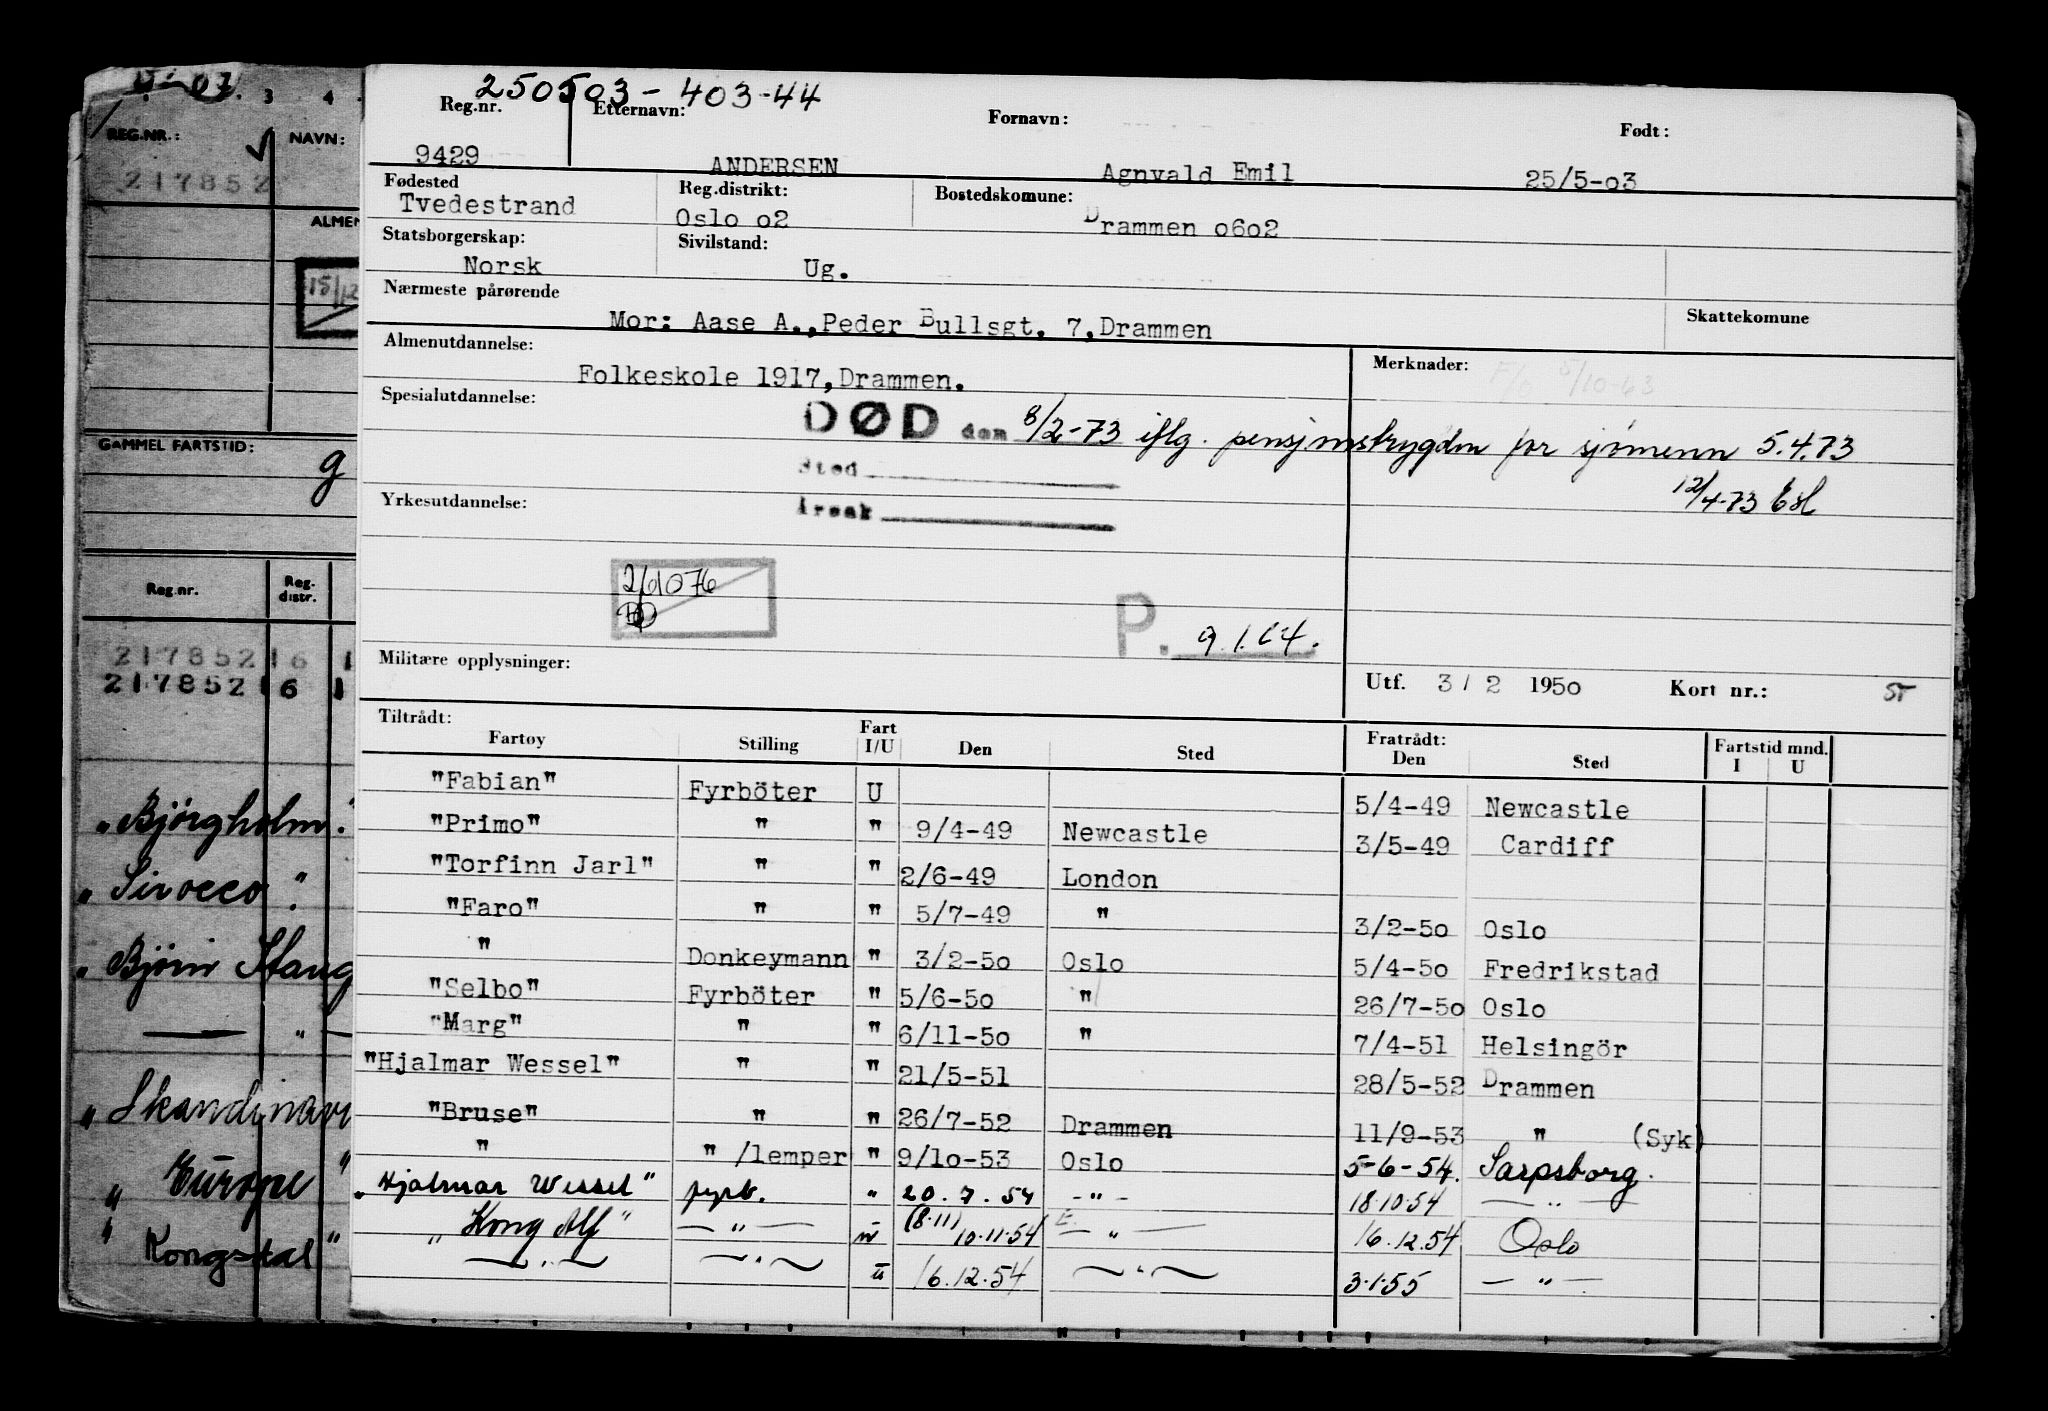 3 4
REG.NR.: NAVN:
217852
ALMEN
15/12
GAMMEL FARTSTID:
g
Reg.nr. Reg. distr.
217852 6 1
217852 6 1
"Bjørgholm"
"Sirocco"
"Bjørn Stang
— " —
"Skandinavi
"Europe"
"Kongsdal"
250503-403-44
Reg.nr. Etternavn: Fornavn: Født:
9429 ANDERSEN Agnvald Emil 25/5-o3
Fødested Reg.distrikt: Bostedskomune:
Tvedestrand Oslo o2 Drammen o6o2
Statsborgerskap: Sivilstand:
Norsk Ug.
Nærmeste pårørende Skattekomune
Mor: Aase A.,Peder Bullsgt. 7,Drammen
Almenutdannelse: Merknader: 8/10-63
Folkeskole 1917,Drammen.
Spesialutdannelse:
DØD den 8/2-73 iflg. pensjonstrygden for sjømenn 5.4.73
Sted
12/4-73 Esl
Yrkesutdannelse: Årsak
P. 9.1.64.
Militære opplysninger:
Utf. 3 / 2 195o Kort nr.:
Tiltrådt: Fart Fratrådt: Fartstid mnd.
Fartøy Stilling I/U Den Sted Den Sted I U
"Fabian" Fyrböter U 5/4-49 Newcastle
"Primo" " " 9/4-49 Newcastle 3/5-49 Cardiff
"Torfinn Jarl" " " 2/6-49 London
"Faro" " " 5/7-49 " 3/2-5o Oslo
" Donkeymann " 3/2-5o Oslo 5/4-5o Fredrikstad
"Selbo" Fyrböter " 5/6-5o " 26/7-5o Oslo
"Marg" " " 6/11-5o " 7/4-51 Helsingör
"Hjalmar Wessel" " " 21/5-51 28/5-52 Drammen
"Bruse" " " 26/7-52 Drammen 11/9-53 " (Syk)
" " /lemper " 9/1o-53 Oslo 5-6-54. Sarpsborg.
"Hjalmar Wessel" fyrb. " 20.7.54 -"- 18.10.54 — " —
"Kong Alf" — " — (8.11) 10.11.54 — " — 16.12.54 Oslo
— " — — " — U 16.12.54 — " — 3.1.55 — " —